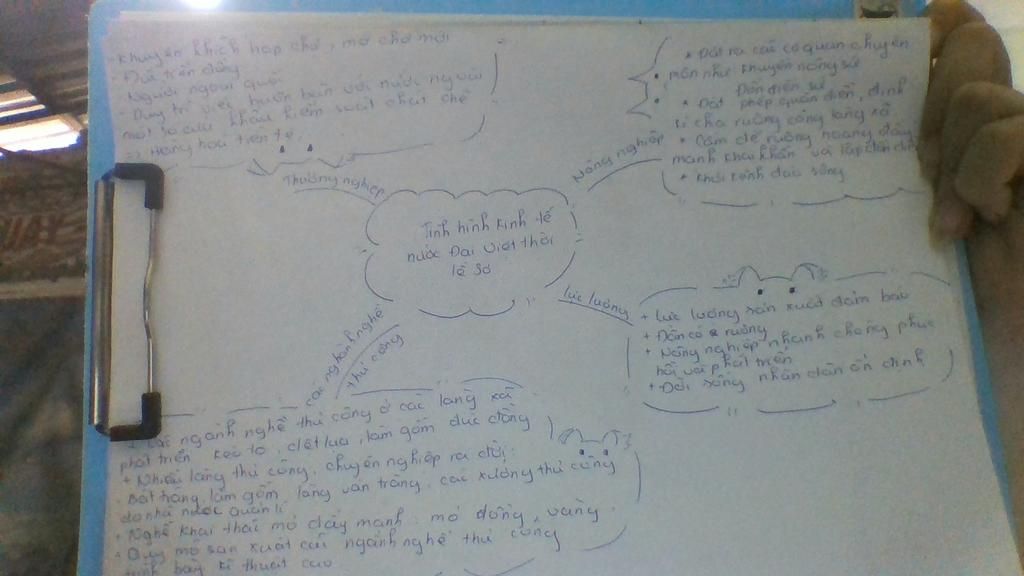 - Khuyến khích họp chợ, mở chợ mới
- Đúc tiền đồng
- Người ngoại quốc
- Duy trì việc buôn bán với nước ngoài
một số cửa khẩu kiểm soát chặt chẽ
=> Hàng hóa tiền tệ
Thương nghiệp
* Đặt ra các cơ quan chuyên
môn như khuyến nông sứ
Đồn điền sứ
* Đặt phép quân điền, định
kì chia ruộng công làng xã
* Cấm để ruộng hoang đẩy
mạnh khai khẩn và lập đồn điền
* Khơi kênh đào sông
Nông nghiệp
Tình hình kinh tế
nước Đại Việt thời
lê sơ
lực lượng
+ Lực lượng sản xuất đảm bảo
+ Dân có ruộng
+ Nông nghiệp nhanh chóng phục
hồi và phát triển
+ Đời sống nhân dân ổn định
các nghành nghề
thủ công
+ Các ngành nghề thủ công ở các làng xã
phát triển kéo tơ, dệt lụa, làm gốm đúc đồng
+ Nhiều làng thủ công, chuyên nghiệp ra đời:
Bát tràng làm gốm làng vân tràng, các xưởng thủ công
do nhà nước quản lí
+ Nghề khai thác mỏ đẩy mạnh: mỏ đồng, vàng
+ Quy mô sản xuất các ngành nghề thủ công
kĩ thuật cao